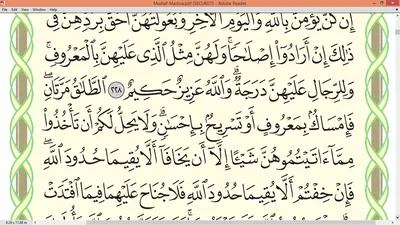 Mushaf-Madina.pdf (SECURED) - Adobe Reader
إِن كُنَّ يُؤْمِنَّ بِٱللَّهِ وَٱلْيَوْمِ ٱلْـَٔاخِرِ وَبُعُولَتُهُنَّ أَحَقُّ بِرَدِّهِنَّ فِى
ذَٰلِكَ إِنْ أَرَادُوٓا۟ إِصْلَٰحًا ۚ وَلَهُنَّ مِثْلُ ٱلَّذِى عَلَيْهِنَّ بِٱلْمَعْرُوفِ ۚ
وَلِلرِّجَالِ عَلَيْهِنَّ دَرَجَةٌ ۗ وَٱللَّهُ عَزِيزٌ حَكِيمٌ ٢٢٨ ٱلطَّلَٰقُ مَرَّتَانِ ۖ
فَإِمْسَاكٌۢ بِمَعْرُوفٍ أَوْ تَسْرِيحٌۢ بِإِحْسَٰنٍ ۗ وَلَا يَحِلُّ لَكُمْ أَن تَأْخُذُوا۟
مِمَّآ ءَاتَيْتُمُوهُنَّ شَيْـًٔا إِلَّآ أَن يَخَافَآ أَلَّا يُقِيمَا حُدُودَ ٱللَّهِ ۖ
فَإِنْ خِفْتُمْ أَلَّا يُقِيمَا حُدُودَ ٱللَّهِ فَلَا جُنَاحَ عَلَيْهِمَا فِيمَا ٱفْتَدَتْ